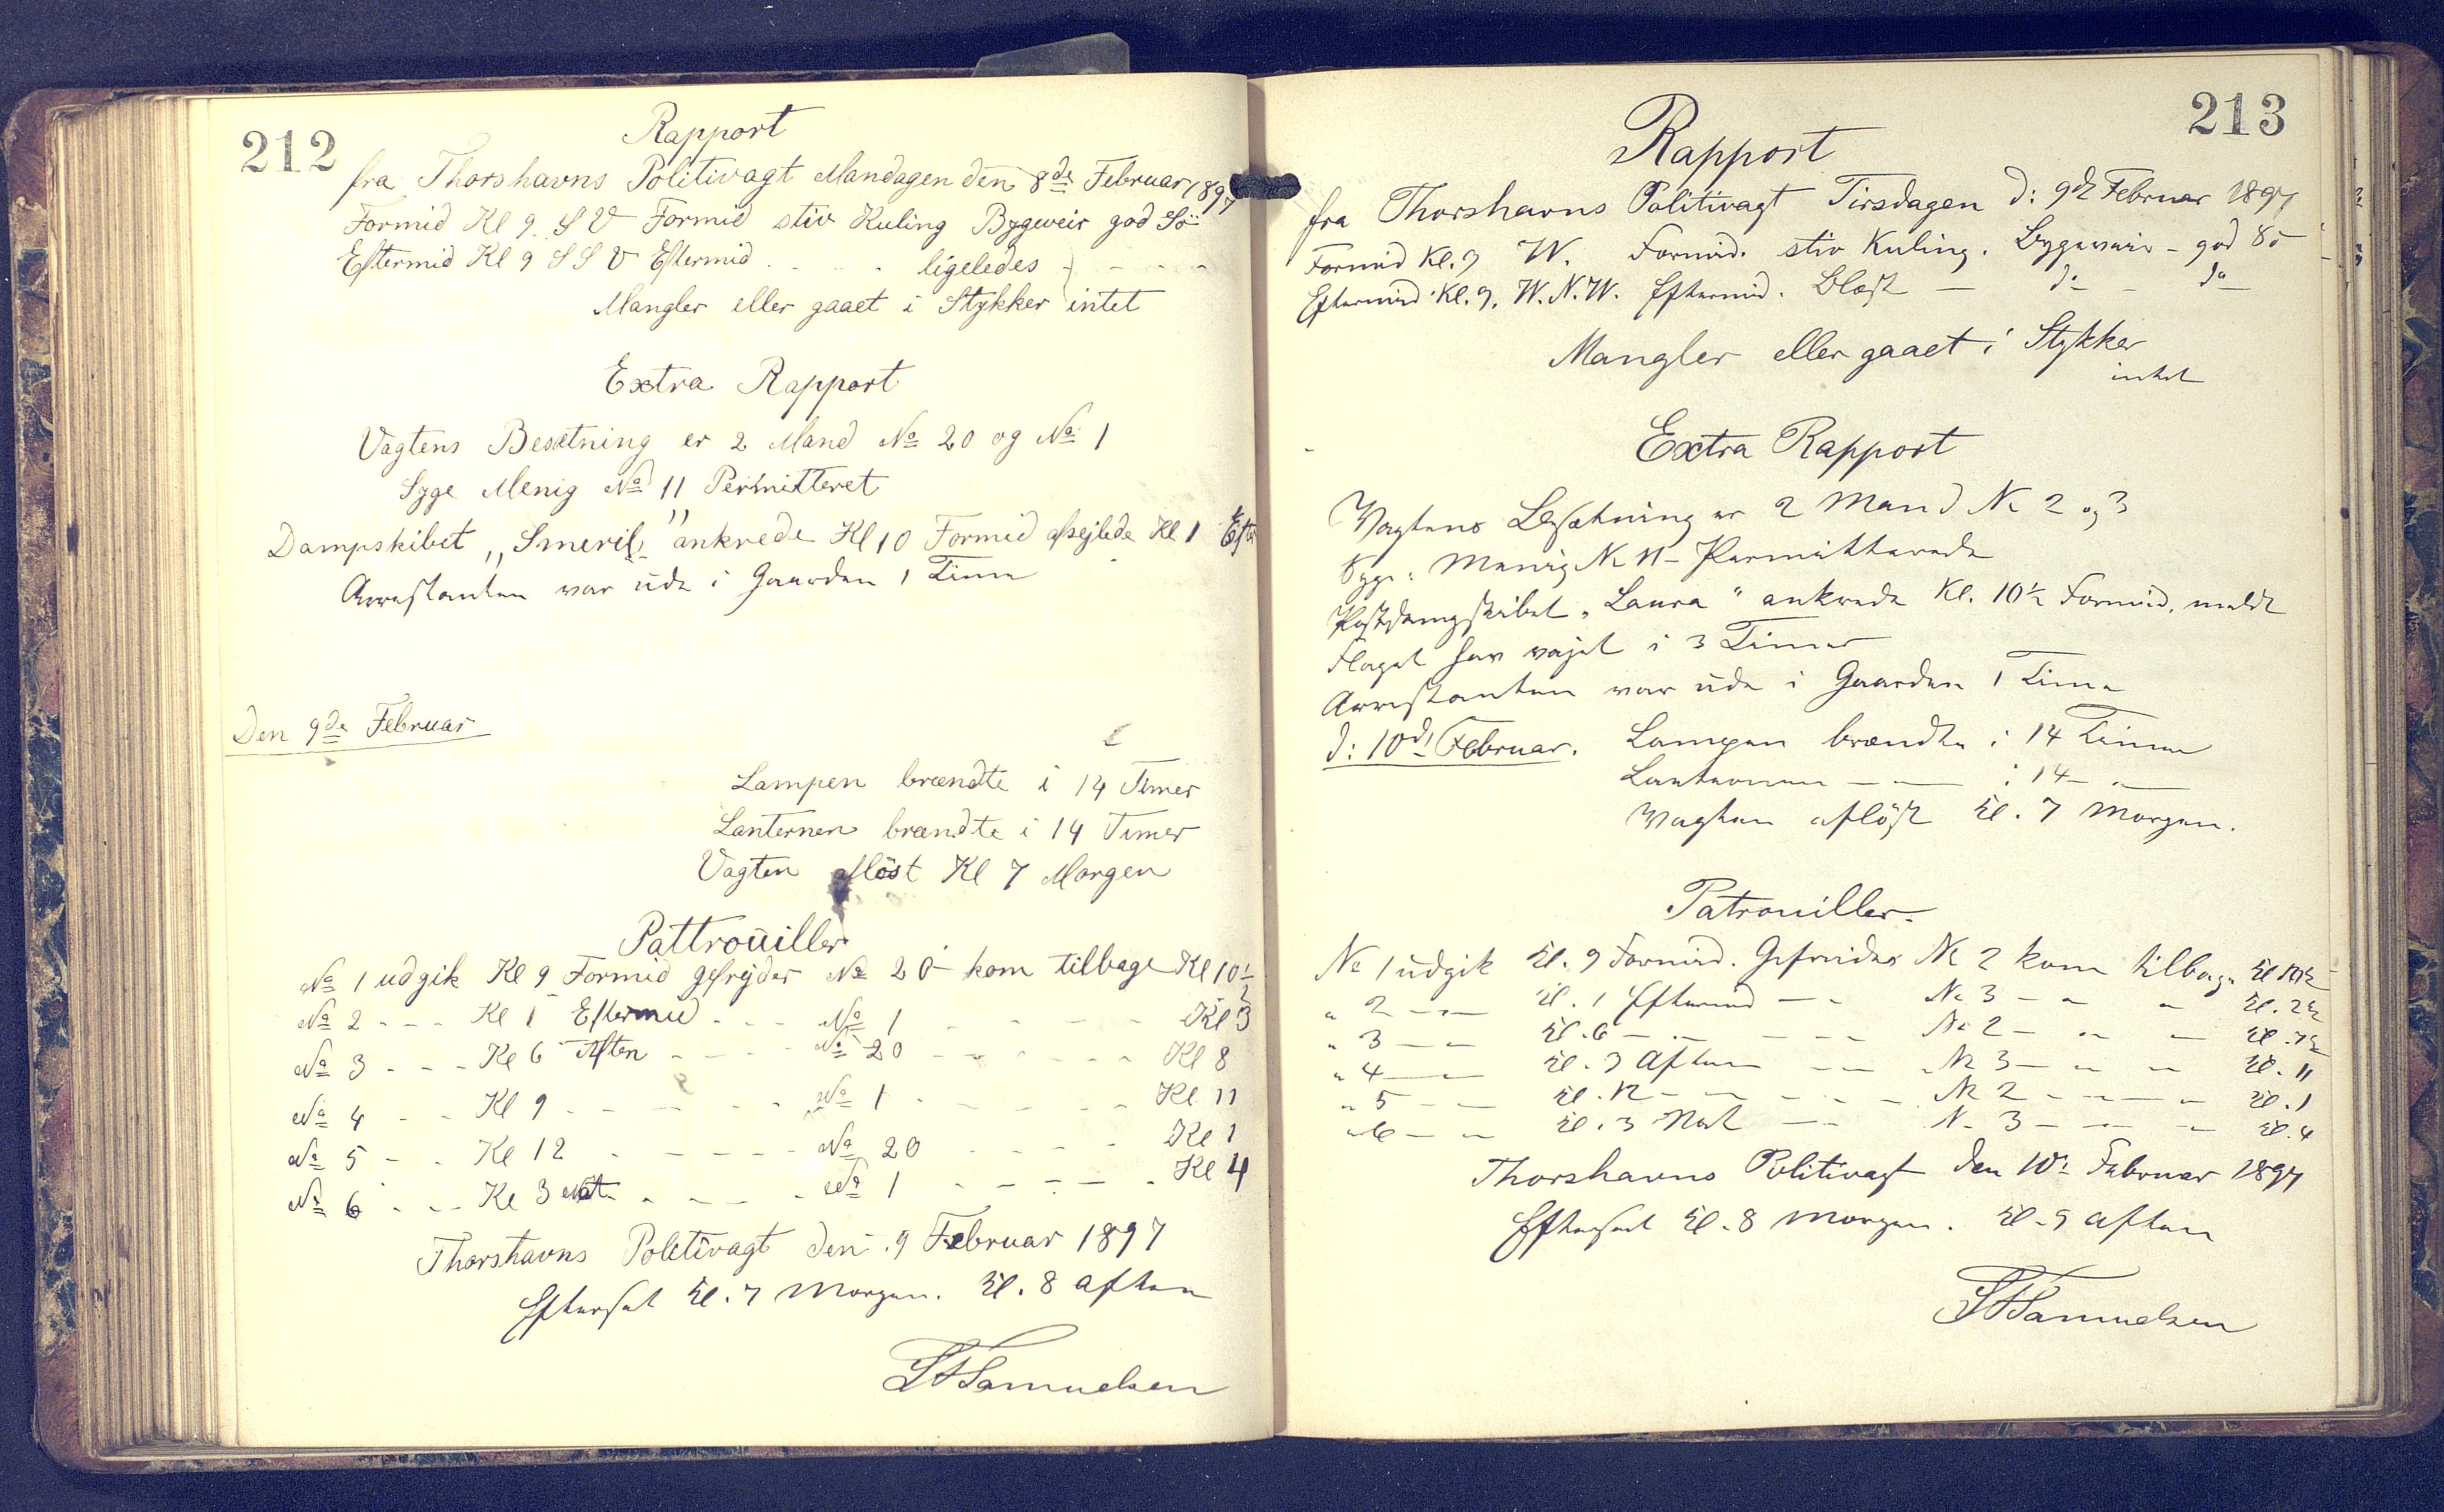 212
Rapport
fra Thorshavns Politivagt Mandagen den 8de Februar 1897
Formid Kl 9. S V Formid stiv Kuling Bygeveir god Sö
Eftermid Kl 9 S S V Eftermid . . . ligeledes - - -
Mangler eller gaaet i Stykker intet
Extra Rapport
Vagtens Besætning er 2 Mand No 20 og No 1
Syge Menig No 11 Permitteret
Dampskibet „Smeril” ankrede Kl 10 Formid afsejlede Kl 1 Eft
Arrestanten var ude i Gaarden 1 Time
Den 9de Februar
Lampen brændte i 14 Timer
Lanternen brændte i 14 Timer
Vagten aflöst Kl 7 Morgen
Pattrouiller
No 1 udgik Kl 9 Formid gefrejder No 20 - kom tilbage Kl 10½
No 2 - - - Kl 1 Eftermid - - - No 1 - - - - Kl 3
No 3 - - - Kl 6 Aften - - - - No 20 - - - - - Kl 8
No 4 - - Kl 9 - - - - - No 1 - - - - - Kl 11
No 5 - - Kl 12 - - - - - No 20 - - - - Kl 1
No 6 - - - Kl 3 Nat - - - - No 1 - - - - - Kl 4
Thorshavns Politivagt den 9 Februar 1897
Efterset Kl. 7 Morgen. Kl. 8 Aften
Samuelsen
213
Rapport
fra Thorshavns Politivagt Tirsdagen d: 9de Februar 1897
Formid Kl. 9 W. Formid. stiv Kuling. Bygeveir - god Sö
Eftermid Kl. 9. W.N.W. Eftermid. Blæst - do - do
Mangler eller gaaet i Stykker
intet
Extra Rapport
Vagtens Besætning er 2 Mand No 2 og 3
Syge: Menig No 11 - Permitterede
Postdampskibet „Laura“ ankrede Kl. 10½ Formid. meldt
Flaget har vajet i 3 Timer
Arrestanten var ude i Gaarden 1 Time
d: 10de Februar. Lampen brændte i 14 Timer
Lanternen - - - i 14 - -
Vagten aflöst Kl. 7 Morgen.
Patrouiller.
No 1 udgik Kl. 9 Formid. Gefreider No 2 kom tilbage Kl 10½
" 2 - - Kl. 1 Eftermid - - No 3 - - - Kl. 2½
" 3 - - Kl. 6 - - - - No 2 - - - Kl. 7½
" 4 - - Kl. 9 Aften - - No 3 - - - Kl. 11
" 5 - - Kl. 12 - - - - No 2 - - - Kl. 1
" 6 - - Kl. 3 Nat - - No 3 - - - Kl. 4
Thorshavns Politivagt den 10de Februar 1897
Efterset Kl. 8 Morgen. Kl. 9 Aften
Samuelsen